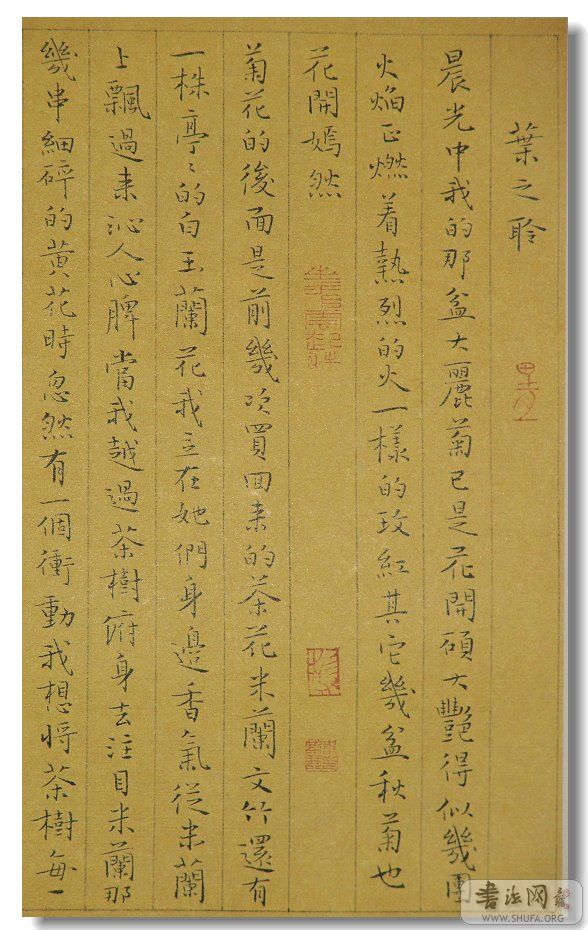 葉之聆
晨光中我的那盆大麗菊已是花開碩大艷得似幾團
火焰正燃着熱烈的火一樣的玫紅其它幾盆秋菊也
花開嫣然
菊花的後面是前幾次買回来的茶花米蘭文竹還有
一株亭々的白玉蘭花我立在她們身邊香氣從米蘭
上飄過来沁人心脾當我越過茶樹俯身去注目米蘭那
幾串細碎的黄花時忽然有一個衝動我想将茶樹每一
書法网
WWW.SHUFA.ORG